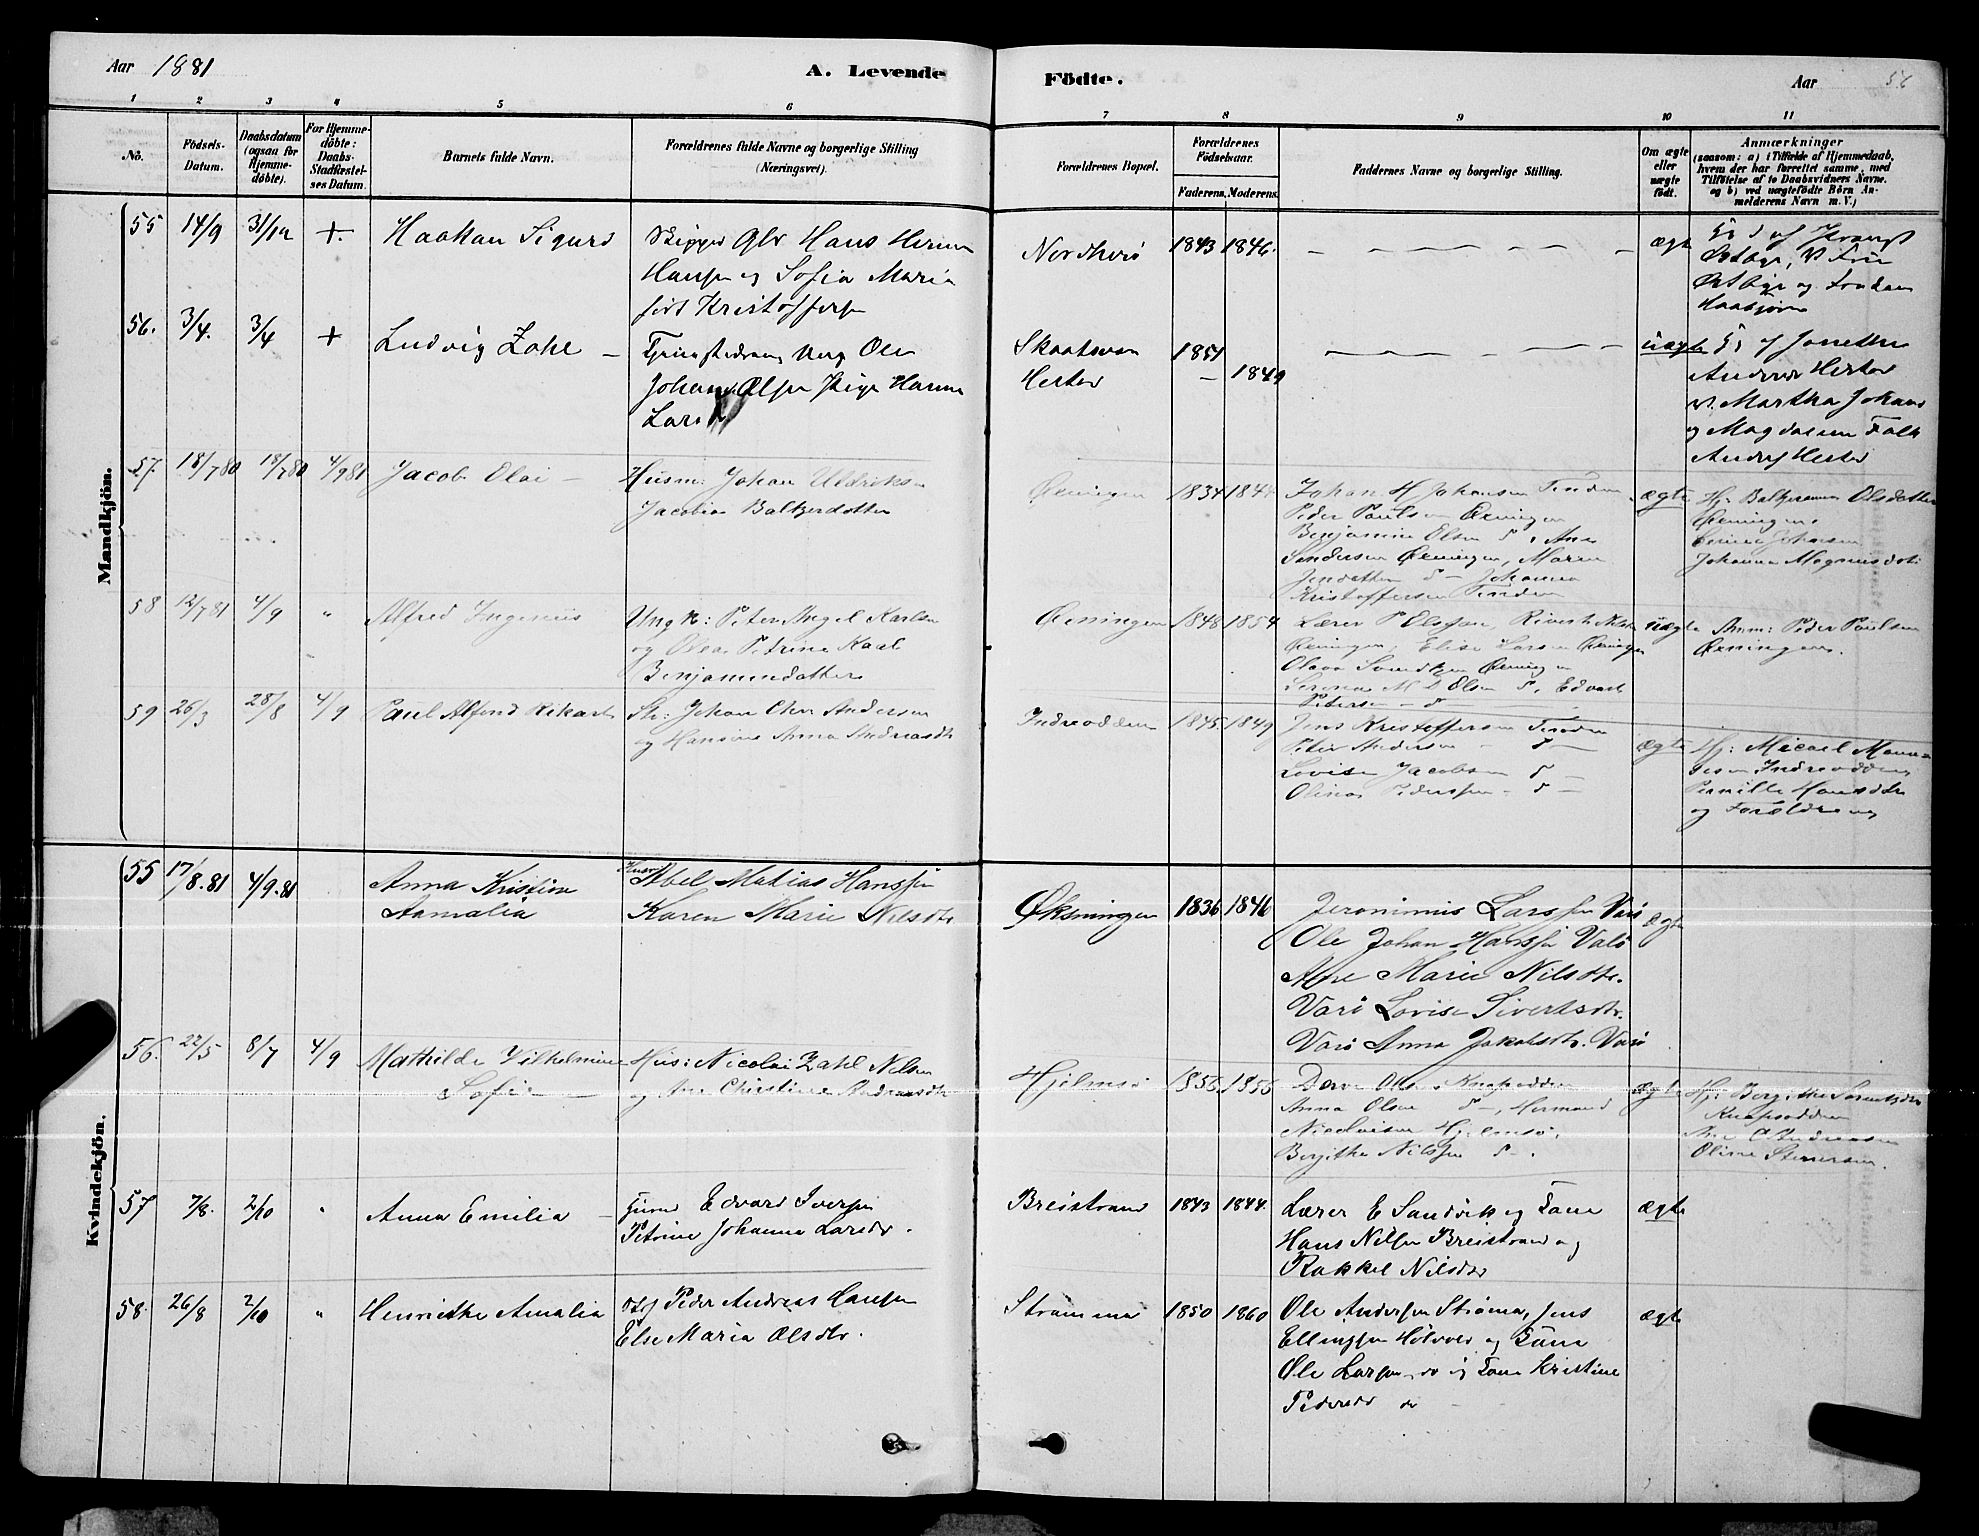 Aar 1881
A. Levende
Födte.
Aar 56
1 2 3 4 5 6 7 8 9 10 11
No.
Födsels-
Datum.
Daabsdatum
(ogsaa for
Hjemme-
döbte).
For Hjemme-
döbte:
Daabs-
Stadfæstel-
ses Datum.
Barnets fulde Navn.
Forældrenes fulde Navne og borgerlige Stilling
(Næringsvei).
Forældrenes Bopæl.
Forældrenes
Födselsaar.
Faderens. Moderens.
Faddernes Navne og borgerlige Stilling.
Om ægte
eller
uægte
födt.
Anmærkninger
(saasom: a) i Tilfælde af Hjemmedaab,
hvem der har forrettet samme, med
Tilföielse af to Daabsvidners Navne,
og b) ved uægtefödte Börn An-
melderens Navn m. V.)
Mandkjön.
55 14/9 31/12 +. Haakan Sigurd
Hans
Hansen og Sofia Maria
født Kristoffersen
Nordherø 1843 1846. ægte
og
56. 3/4. 3/4 + Ludvig Zahl –
Ole
Johan Olsen Pige Hanna
Lars
Hestø 1851 – 1849 uægte
Anders Hestø
v. Martha Johans
og Magdalena Falk
Hestø
57. 18/7 80 18/7 80 4/9 81 Jacob Olai –
Husm: Johan Uldriksen
Jacobia Baltzerdatter
Øxningen 1834 1844
Johan H Johansen Tinden
Peder Paulsen Øxningen
Benjamin Olsen d. Ane
Sandersen Øxningen, Maren
Jensdatter d – Johanna
Kristoffersen Tinden
ægte Hj: Olsdatter
Øxningen.
Johansen
Johanna Magnusdotr
58 12/7 81 4/9 " Alfred Ingenius
Ungk: Peter Angel Karlsen
og Olea Petrine Kaal
Benjaminsdatter
Øxningen 1848 1854
Lærer P Olsson, Nilsen
Øxningen, Elise Larsen Øxningen
Olava Øxningen
Serena M D Olsen d. Edvart
Petersen – d
uægte Anm: Peder Paulsen
Øxningen.
59 26/3 28/8 4/9 Paul Alfred Rikart
Str: Johan Chr Andersen
og Hansine Anna Andreasdtr
Indreodden 1845 1849
Jens Kristoffersen Tinden
Peter Andersen – d –
Lovise Jacobsen d –
Olina Pederssen – d –
ægte Hj: Micael
Indreodden
Pernille Hansdtr
og Forældrene
Kvindekjön.
55 17/8.81 4/9.81
Anna Kristine
Aamalia
Husm Abel Matias Hanssen
Karen Marie Nilsdtr
Øksningen 1836 1846
Jeronimus Larssen Varø
Ole Johan Hanssen Valø
Ane Marie Nilsdtr.
Varø Lovise Sivertsdtr.
Varø Anna Jakobsdtr. Varø
ægte
56. 22/5 8/7 4/9 Mathilde Vilhelmine
Sofie –
Hus: Nicolai Zahl Nilsen
og Ane Christine Andreasdtr
Hjelmsø 1856. 1855
Knapodden
Anna Olsen d –, Hermand
Nicolaisen Hjelmsø,
Bergithe Nilssen d –.
ægte Hj: Bergithe
Knapodden
Ane C Andreasen
Oline Stenersen.
57 7/8. 2/10 " Anna Emilia –
Edvard Iversen
Petrine Johanna Larsdr.
Breistrand 1843 1844.
Lærer E Sandvik og Kone
Hans Nilsen Breistrand og
Rakkel Nilsdtr
ægte
58. 26/8 2/10 " Henrietha Amalia
Peder Andreas Hansen
Else Maria Olsdtr.
Strømmen 1850 1860
Ole Andersen Strøma, Jens
Ellingsen Holvær og Kone
Ole Larsen do og Kone Kristine
Pedersdr do –
ægte